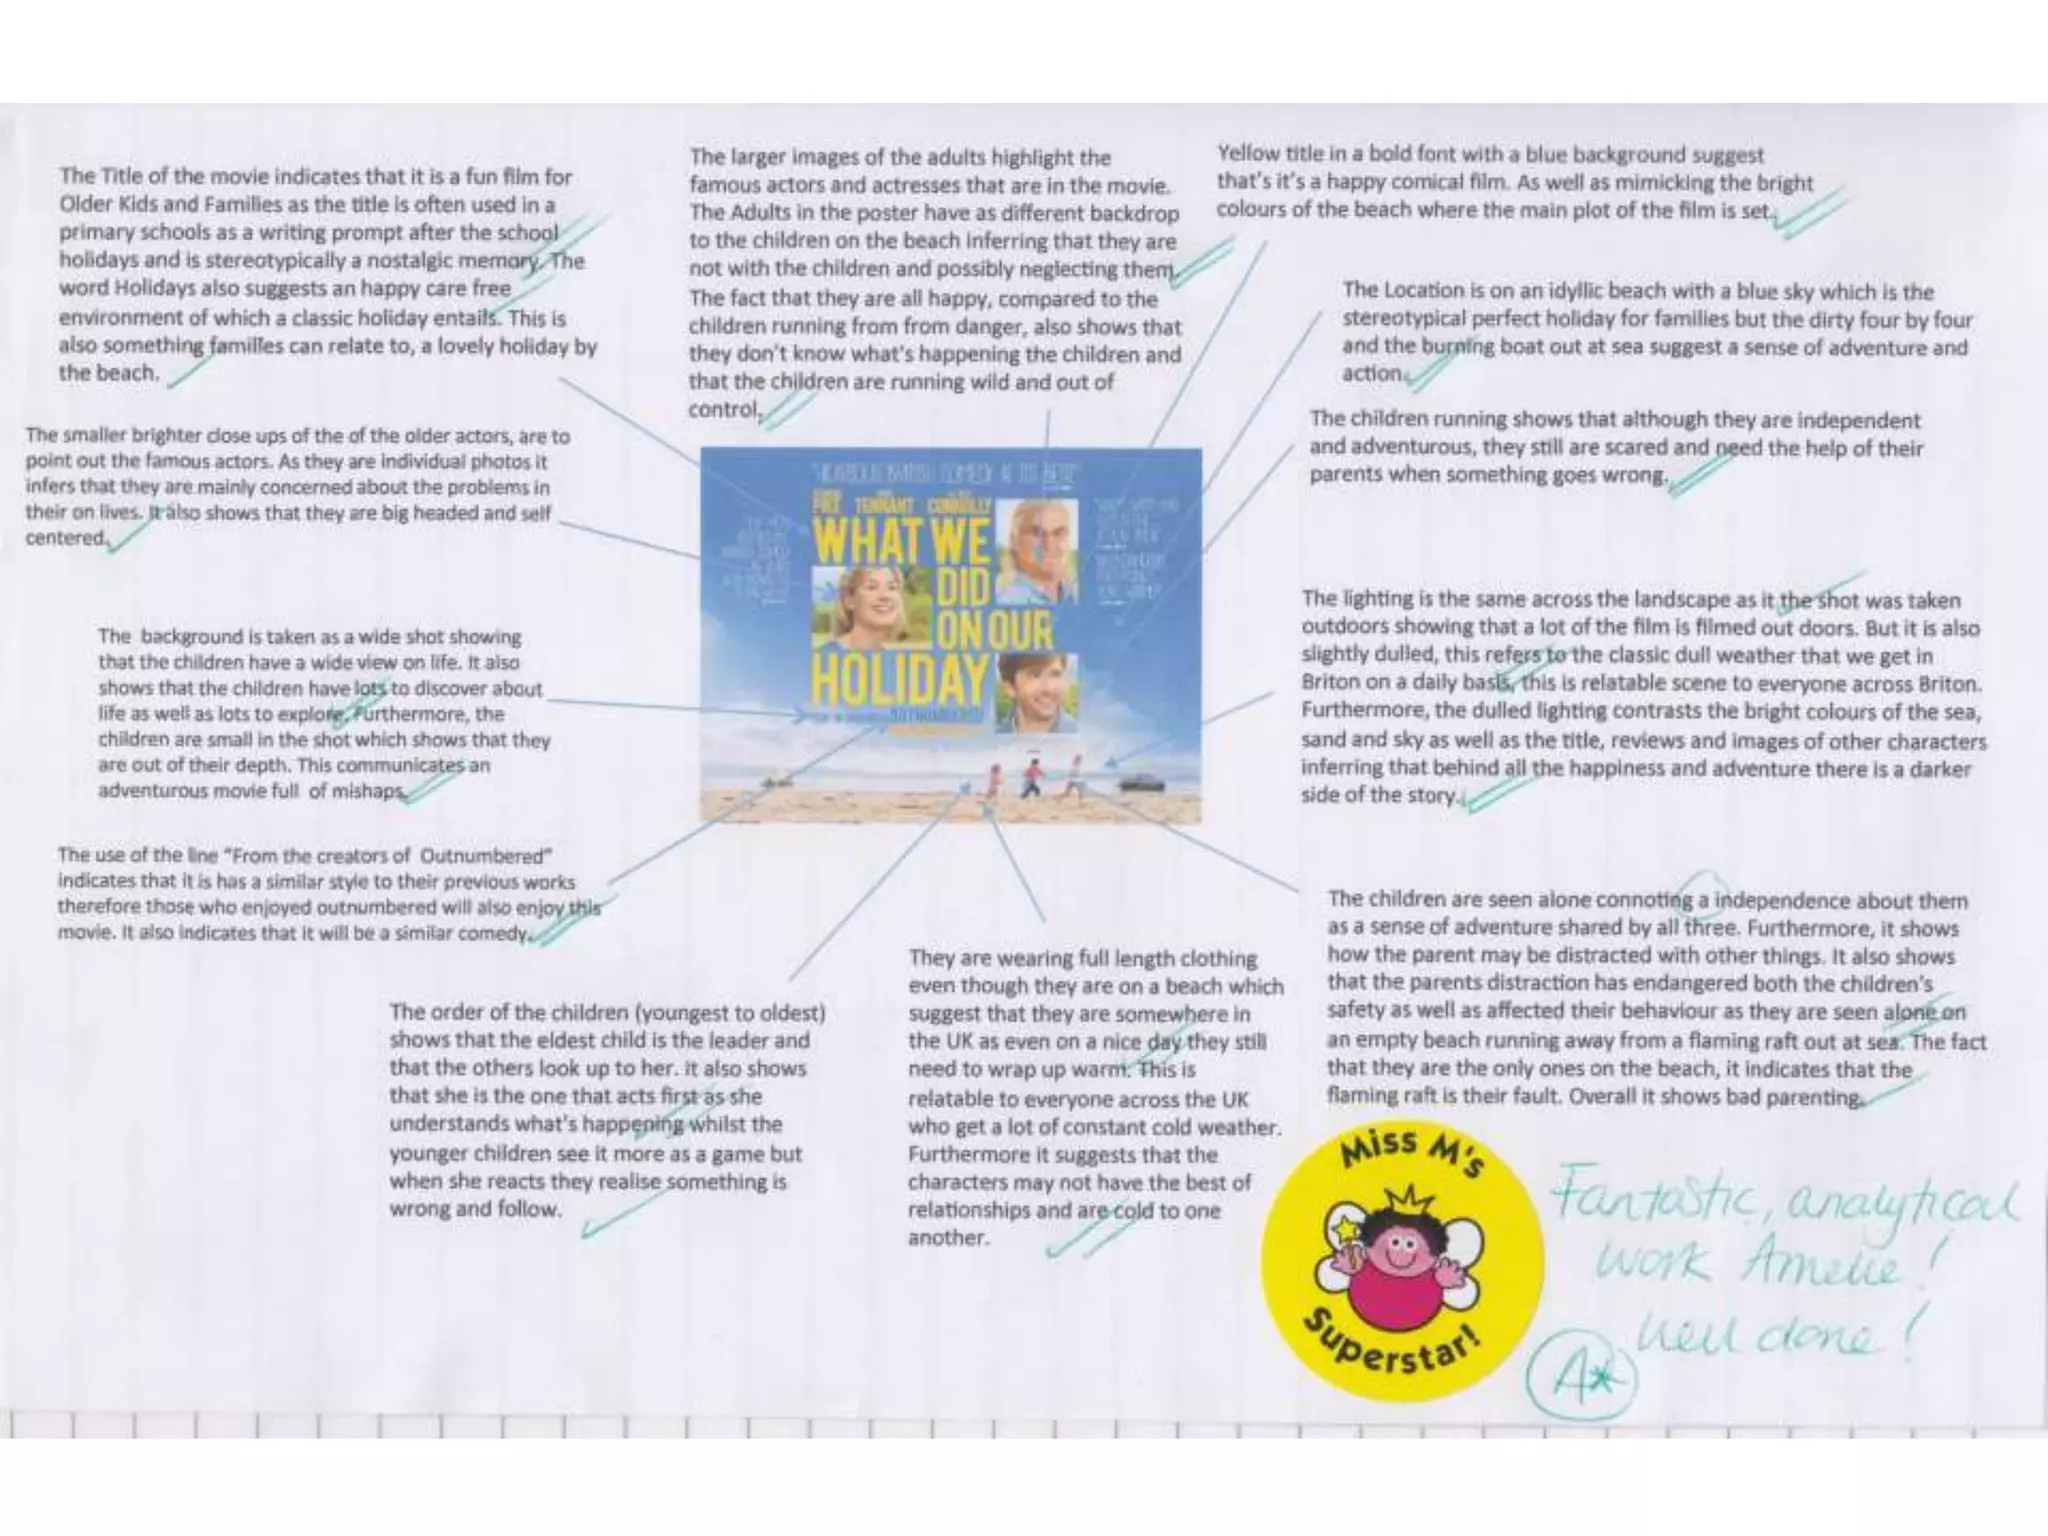 The Title of the movie indicates that it is a fun film for
Older Kids and Families as the title is often used in a
primary schools as a writing prompt after the school
holidays and is stereotypically a nostalgic memory. The
word Holidays also suggests an happy care free
environment of which a classic holiday entails. This is
also something families can relate to, a lovely holiday by
the beach.
The larger images of the adults highlight the
famous actors and actresses that are in the movie.
The Adults in the poster have as different backdrop
to the children on the beach inferring that they are
not with the children and possibly neglecting them.
The fact that they are all happy, compared to the
children running from from danger, also shows that
they don't know what's happening the children and
that the children are running wild and out of
control.
Yellow title in a bold font with a blue background suggest
that's it's a happy comical film. As well as mimicking the bright
colours of the beach where the main plot of the film is set.
The Location is on an idyllic beach with a blue sky which is the
stereotypical perfect holiday for families but the dirty four by four
and the burning boat out at sea suggest a sense of adventure and
action.
The children running shows that although they are independent
and adventurous, they still are scared and need the help of their
parents when something goes wrong.
The smaller brighter close ups of the of the older actors, are to
point out the famous actors. As they are individual photos it
infers that they are mainly concerned about the problems in
their on lives. It also shows that they are big headed and self
centered.
PIKE TENNANT CONNOLLY
WHAT WE
DID
ON OUR
HOLIDAY
OUTNUMBERED
The background is taken as a wide shot showing
that the children have a wide view on life. It also
shows that the children have lots to discover about
life as well as lots to explore. Furthermore, the
children are small in the shot which shows that they
are out of their depth. This communicates an
adventurous movie full of mishaps.
The lighting is the same across the landscape as it the shot was taken
outdoors showing that a lot of the film is filmed out doors. But it is also
slightly dulled, this refers to the classic dull weather that we get in
Briton on a daily basis, this is relatable scene to everyone across Briton.
Furthermore, the dulled lighting contrasts the bright colours of the sea,
sand and sky as well as the title, reviews and images of other characters
inferring that behind all the happiness and adventure there is a darker
side of the story.
The use of the line "From the creators of Outnumbered"
indicates that it is has a similar style to their previous works
therefore those who enjoyed outnumbered will also enjoy this
movie. It also indicates that it will be a similar comedy.
The order of the children (youngest to oldest)
shows that the eldest child is the leader and
that the others look up to her. It also shows
that she is the one that acts first as she
understands what's happening whilst the
younger children see it more as a game but
when she reacts they realise something is
wrong and follow.
They are wearing full length clothing
even though they are on a beach which
suggest that they are somewhere in
the UK as even on a nice day they still
need to wrap up warm. This is
relatable to everyone across the UK
who get a lot of constant cold weather.
Furthermore it suggests that the
characters may not have the best of
relationships and are cold to one
another.
The children are seen alone connoting a independence about them
as a sense of adventure shared by all three. Furthermore, it shows
how the parent may be distracted with other things. It also shows
that the parents distraction has endangered both the children's
safety as well as affected their behaviour as they are seen alone on
an empty beach running away from a flaming raft out at sea. The fact
that they are the only ones on the beach, it indicates that the
flaming raft is their fault. Overall it shows bad parenting.
Miss M's
Superstar!
Fantastic, analytical
work Amelie!
Well done!
A*